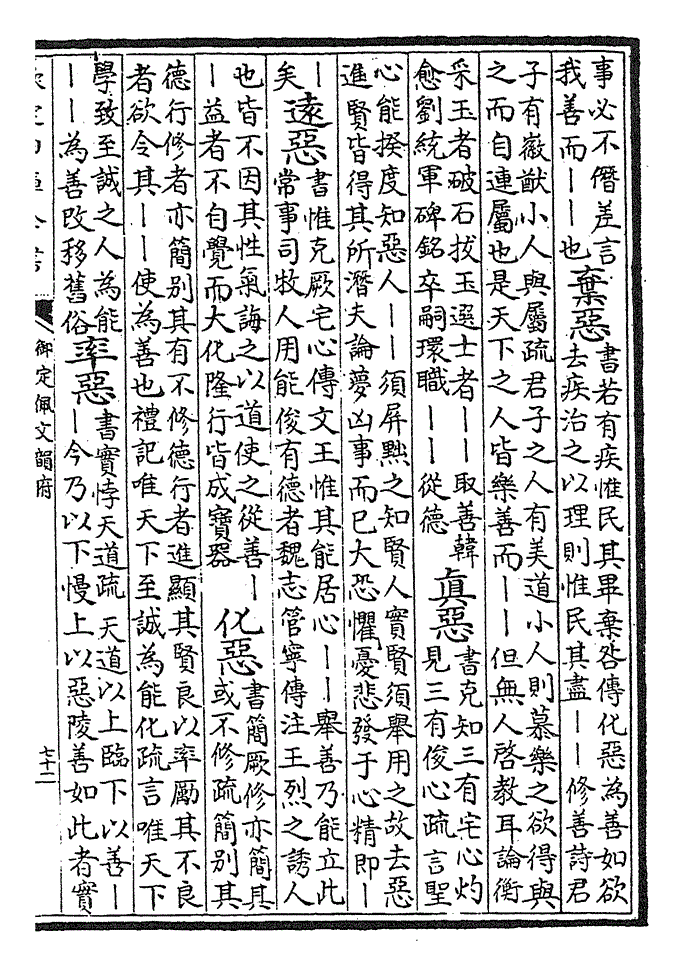 事必不僭差言
我善而——也
棄惡
書若有疾惟民其畢棄咎傳化惡為善如欲
去疾治之以理則惟民其盡——修善詩君
子有徽猷小人與屬疏君子之人有美道小人則慕樂之欲得與
之而自連屬也是天下之人皆樂善而——但無人啓教耳論衡
采玉者破石拔玉選士者——取善韓
愈劉統軍碑銘卒嗣環職——從德
真惡
書克知三有宅心灼
見三有俊心疏言聖
心能揆度知惡人——須屏黜之知賢人實賢須舉用之故去惡
進賢皆得其所潛夫論夢凶事而已大恐懼憂悲發于心精即—
—
矣
遠惡
書惟克厥宅心傳文王惟其能居心——舉善乃能立此
常事司牧人用能俊有德者魏志管寧傳注王烈之誘人
也皆不因其性氣誨之以道使之從善—
—益者不自覺而大化隆行皆成寶器
化惡
書簡厥修亦簡其
或不修疏簡別其
德行修者亦簡別其有不修德行者進顯其賢良以率勵其不良
者欲令其——使為善也禮記唯天下至誠為能化疏言唯天下
學致至誠之人為能
——為善改移舊俗
率惡
書實悖天道疏 天道以上臨下以善—
—今乃以下慢上以惡陵善如此者實
御定佩文韻府
七十二